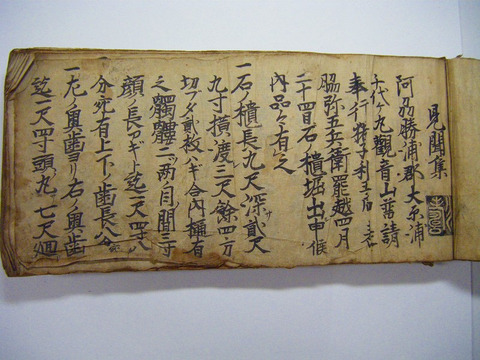 見聞集
阿州勝浦郡大原浦
千代ケ丸観音山普請
奉行 平左衛門
脇弥五兵衛罷越四月
二十四日石ノ櫃堀出申候
内品々有之
一石ノ櫃長九尺深サ貳尺
九寸横ノ度三尺餘四方
切フタ貳枚ハギ合内種有
之髑髏二ツ両ノ目間三寸
顔ノ長サワギニ迄一尺四寸八
分宛有上下ノ歯長八分
一左ノ奥歯ヨリ右ノ奥歯
迄一尺四寸頭丸七尺廻